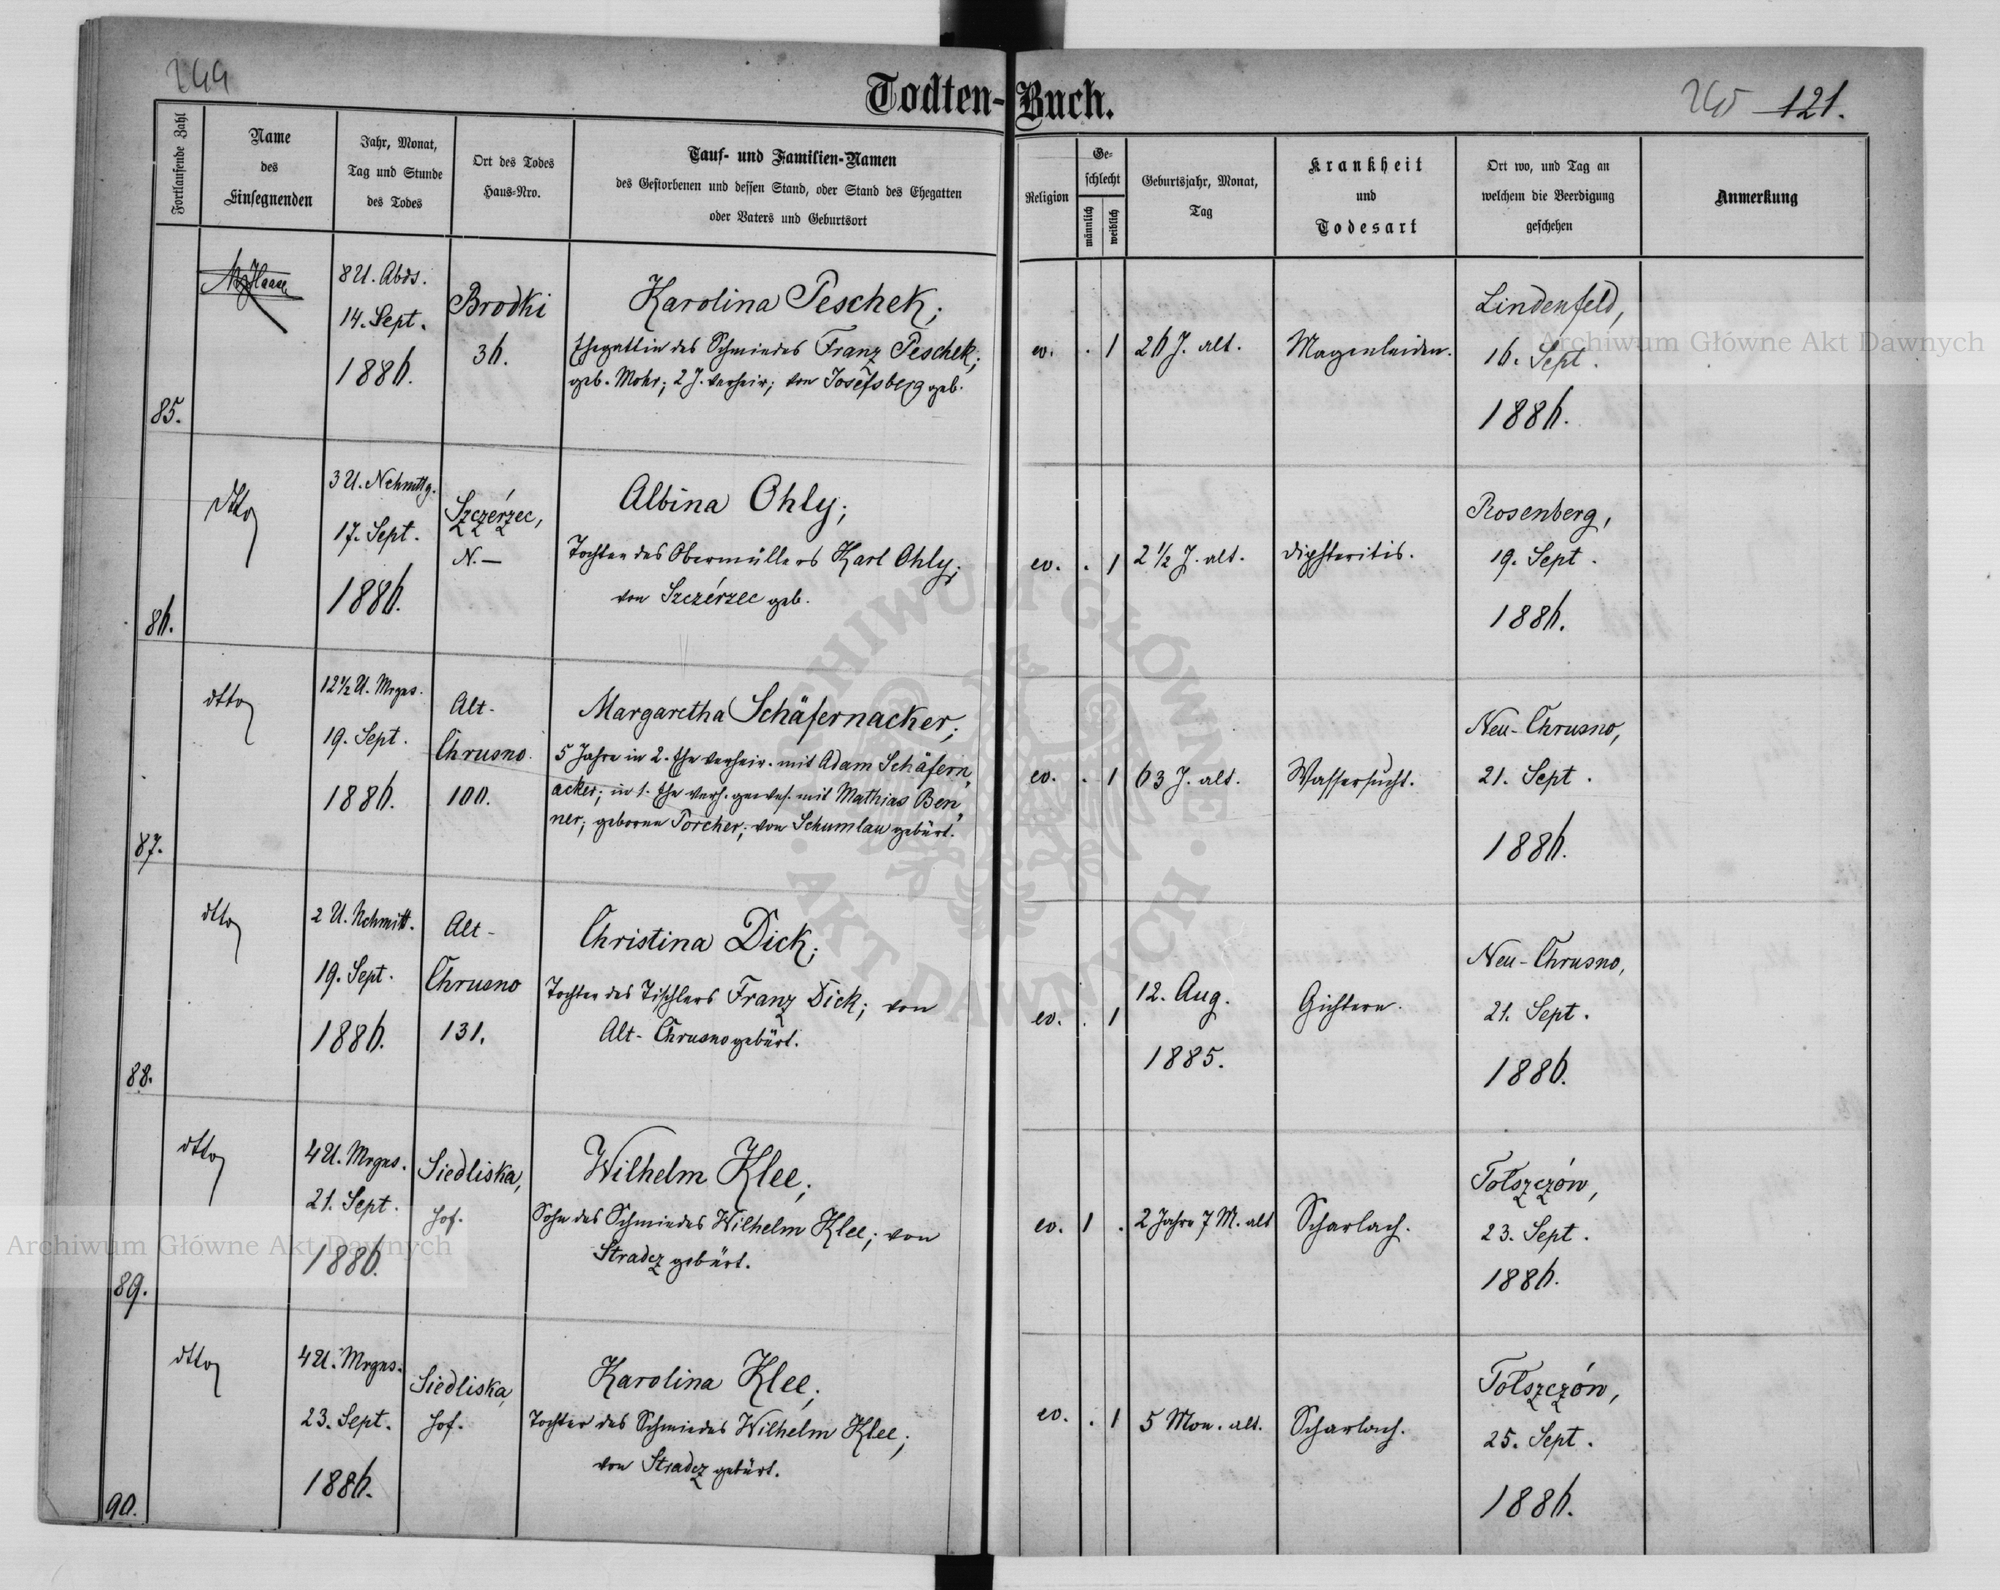 244
Todten-Buch.
245 121.
Fortlaufende Zahl
Name
des
Einsegnenden
Jahr, Monat,
Tag und Stunde
des Todes
Ort des Todes
Haus-Nro.
Tauf- und Familien-Namen
des Gestorbenen und dessen Stand, oder Stand des Ehegatten
oder Vaters und Geburtsort
Religion
Ge-
schlecht
männlich
weiblich
Geburtsjahr, Monat,
Tag
Krankheit
und
Todesart
Ort wo, und Tag an
welchem die Beerdigung
geschehen
Anmerkung
85.
Haase
8 U. Abds.
14. Sept.
1886.
Brodki
36.
Karolina Peschek;
Ehegattin des Schmiedes Franz Peschek;
geb. Mohr; 2 J. verheir; von Josefsberg geb.
ev. . 1
26 J. alt.
Magenleiden.
Lindenfeld,
16. Sept.
1886.
86.
dtto
3 U. Nchmttg.
17. Sept.
1886.
Szczérzec,
N. —
Albina Ohly;
Tochter des Obermüllers Karl Ohly;
von Szczérzec geb.
ev. . 1
2 1/2 J. alt.
Diphteritis.
Rosenberg,
19. Sept.
1886.
87.
dtto
12 1/2 U. Mrgns.
19. Sept.
1886.
Alt-
Chrusno
100.
Margaretha Schäfernacker;
5 Jahre in 2. Ehe verheir. mit Adam Schäfern„
acker; in 1. Ehe verh. gewes. mit Mathias Ben„
ner; geborne Porcher; von Schumlau gebürt.
ev. . 1
63 J. alt.
Wassersucht.
Neu-Chrusno,
21. Sept.
1886.
88.
dtto
2 U. Nchmitt.
19. Sept.
1886.
Alt-
Chrusno
131.
Christina Dick;
Tochter des Tischlers Franz Dick; von
Alt-Chrusno gebürt.
ev. . 1
12. Aug.
1885.
Gichtern.
Neu-Chrusno,
21. Sept.
1886.
89.
dtto
4 U. Mrgns.
21. Sept.
1886.
Siedliska,
Hof.
Wilhelm Klee;
Sohn des Schmiedes Wilhelm Klee; von
Stradcz gebürt.
ev. 1 .
2 Jahre 7 M. alt
Scharlach.
Tołszczów,
23. Sept.
1886.
90.
dtto
4 U. Mrgns.
23. Sept.
1886.
Siedliska,
Hof.
Karolina Klee;
Tochter des Schmiedes Wilhelm Klee;
von Stradcz gebürt.
ev. . 1
5 Mon. alt.
Scharlach.
Tołszczów,
25. Sept.
1886.
Archiwum Główne Akt Dawnych
ARCHIWUM GŁÓWNE
AKT DAWNYCH
Archiwum Główne Akt Dawnych